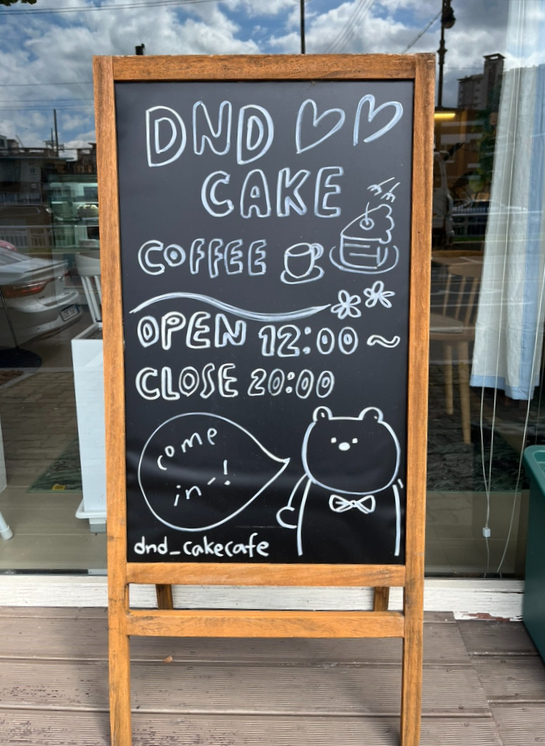 DND
CAKE
COFFEE
OPEN 12:00 ~
CLOSE 20:00
come
in~!
dnd_cakecafe